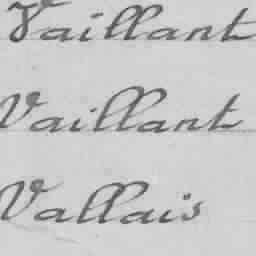 Vaillant
Vaillant
Vallais